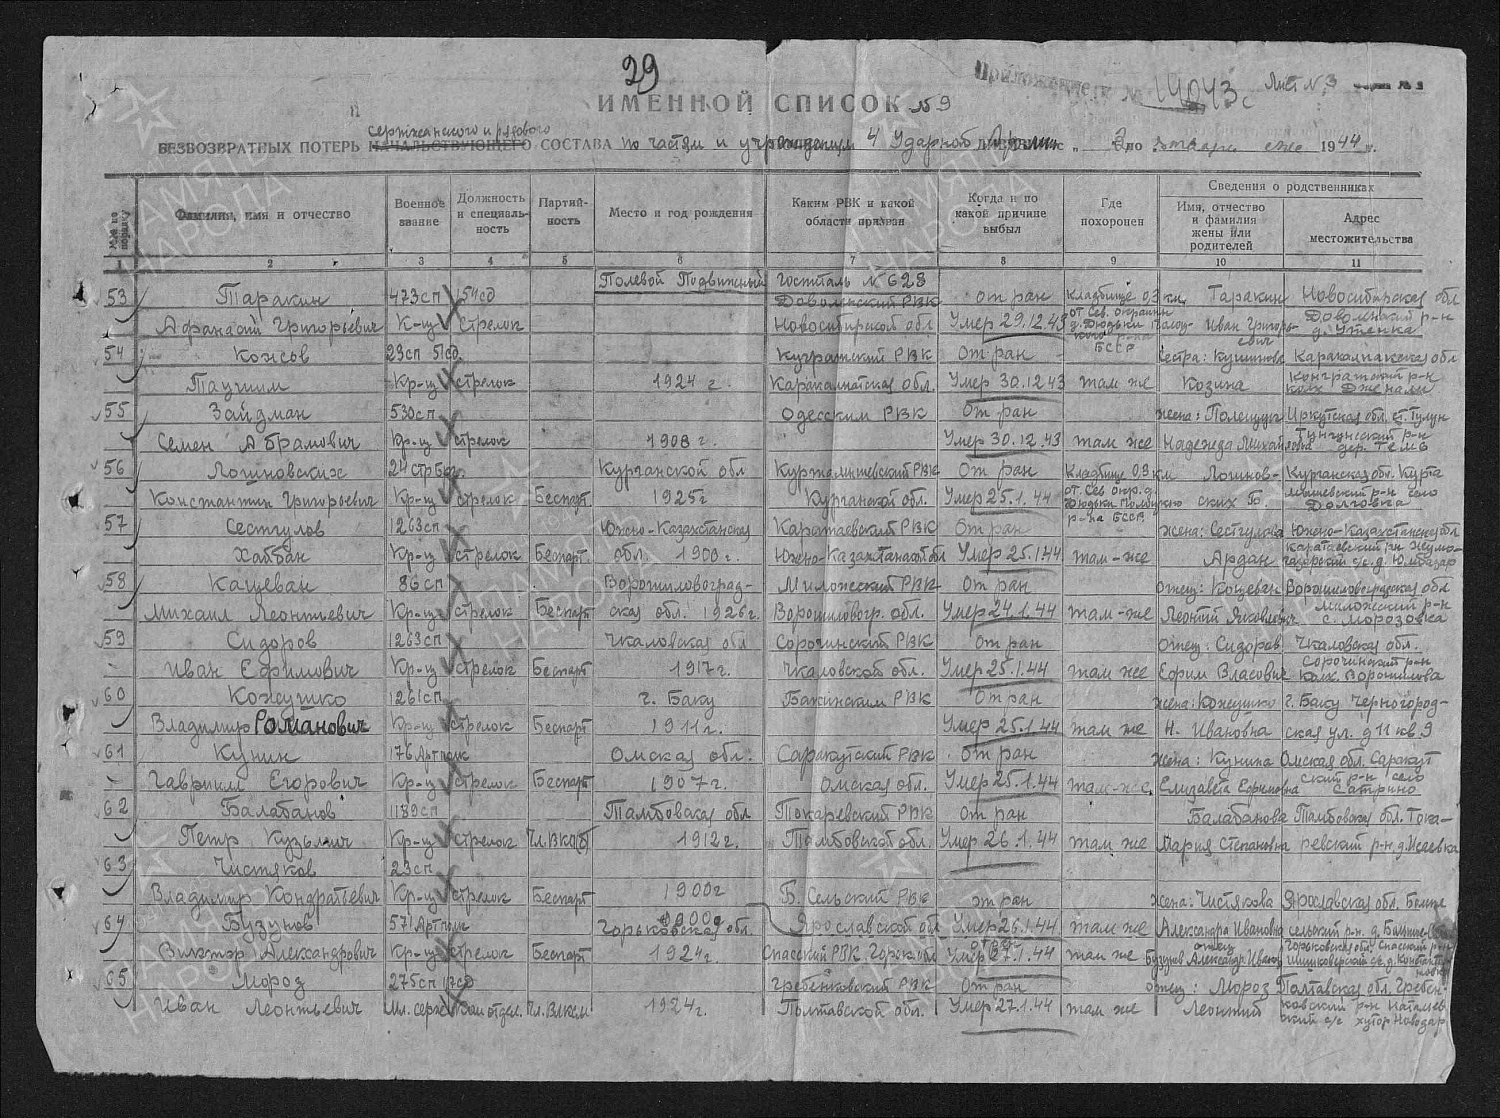 29
Приложение к № 14043с Лист N 3
ИМЕННОЙ СПИСОК №9
сержанского и рядового
БЕЗВОЗВРАТНЫХ ПОТЕРЬ НАЧАЛЬСТВУЮЩЕГО СОСТАВА по частям и учреждениям 4 Ударной Армии 1944 г.
Сведения о родственниках
№№ по порядку Фамилия, имя и отчество Военное звание Должность и специальность Партийность Место и год рождения Каким РВК и какой области призван Когда и по какой причине выбыл Где похоронен Имя, отчество и фамилия жены или родителей Адрес местожительства
1 2 3 4 5 6 7 8 9 10 11
Полевой Подвижный Госпиталь N 628
53 Таракин 473 сп 154 сд Доволенский РВК от ран кладбище 0,3 км Таракин Новосибирская обл
Афанасий Григорьевич К-ц стрелок Новосибирской обл Умер 29.12.43 от Сев. окраины д. Дюдьки БССР Иван Григорьевич Доволенский р-н д. Утенка
54 Кожов 23 сп 51 сд РВК От ран Сестра: Каракалпакская обл
Кр-ц стрелок 1924 г. Каракалпатская обл. Умер 30.12.43 там же Козина р-н колх Дженали
55 Зайдман 530 сп Одесским РВК От ран жена: Полещук Иркутская обл. ст. Тулун
Семен Абрамович Кр-ц стрелок 1908 г. Умер 30.12.43 там же Надежда Михайловна р-н дер.
56 Логиновских 24 стр бг. Курганской обл РВК От ран Кладбище 0,9 км Логинов- Курганская обл. Курта
Константин Григорьевич Кр-ц стрелок Беспарт 1925 г Курганской обл. Умер 25.1.44 от Сев окр. д. Дюдьки р-на БССР ских Б. мышевский р-н село Долговка
57 Сестулов 1263 сп Южно-Казахстанская Каратаевский РВК От ран жена: Сестулова Южно-Казахстанск обл
Хабан Кр-ц стрелок Беспарт обл. 1900 г. Южно-Казахстанской обл Умер 25.1.44 там-же Ардан Каратаевский р-н
58 Кащеван 86 сп Ворошиловоград- Миложеский РВК От ран отец: Кощеван Ворошиловградская обл
Михаил Леонтьевич Кр-ц стрелок Беспарт ская обл. 1926 г. Ворошиловогр. обл. Умер 24.1.44 там-же Леонтий Яковлевич Миложеский р-н с. Морозовка
59 Сидоров 1263 сп Чкаловская обл Сорочинский РВК от ран Отец: Сидоров Чкаловская обл.
Иван Ефимович Кр-ц стрелок Беспарт 1917 г. Чкаловской обл. Умер 25.1.44 там же Ефим Власович Сорочинский р-н колх. Ворошилова
60 Кожушко 1261 сп г. Баку Бакинским РВК От ран жена: Кожушко г. Баку Черногород-
Владимир Романович Кр-ц стрелок Беспарт 1911 г. Умер 25.1.44 там же Н. Ивановна ская ул. д 11 кв 9
61 Кунин 176 Артполк Омская обл. Саракутский РВК от ран жена: Кунина Омская обл. Саракут
Гавриил Егорович Кр-ц стрелок Беспарт 1907 г. Омская обл. Умер 25.1.44 там-же Елизавета Ефимовна ский р-н село Сатрино
62 Балабанов 1189 сп Тамбовская обл Токаревский РВК От ран Балабанова Тамбовская обл. Тока-
Петр Кузьмич Кр-ц стрелок Чл.ВКП(б) 1912 г. Тамбовской обл. Умер 26.1.44 там же Мария Степановна ревский р-н, д. Исаевка
63 Чистяков 23 сп
Владимир Кондратьевич Кр-ц стрелок Беспарт 1900 г Б. Сельский РВК от ран жена: Чистякова Ярославская обл. Больше
64 Бузунов 571 Артполк Горьковская обл. Ярославской обл Умер 26.1.44 там же Александра Ивановна сельский р-н. д.
Виктор Александрович Кр-ц стрелок Беспарт 1924 г. Спасский РВК Горьк. обл от ран Умер 27.1.44 там же отец Бузунов Александр Иванов Горьковская обл. Спасский р-н
65 Мороз 275 сп Гребенковский РВК От ран отец: Мороз Полтавская обл. Гребен
Иван Леонтьевич Мл. серж Ком отдел. Чл. ВЛКСМ 1924 г. Полтавской обл. Умер 27.1.44 там же Леонтий ковский р-н хутор Новодар